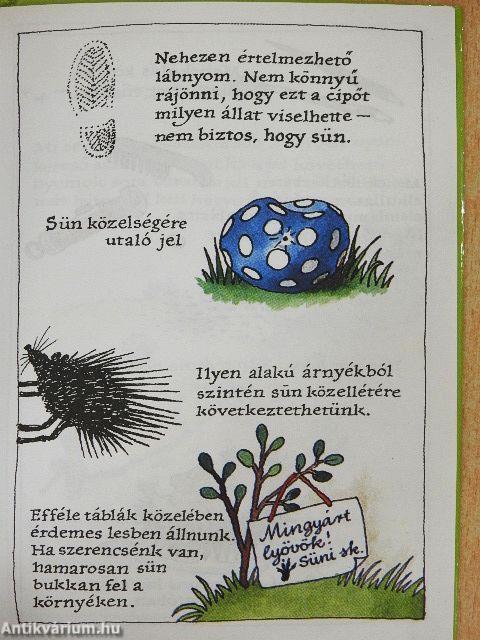 Nehezen értelmezhető
lábnyom. Nem könnyű
rájönni, hogy ezt a cipőt
milyen állat viselhette –
nem biztos, hogy sün.
Sün közelségére
utaló jel
Ilyen alakú árnyékból
szintén sün közellétére
következtethetünk.
Efféle táblák közelében
érdemes lesben állnunk.
Ha szerencsénk van,
hamarosan sün
bukkan fel a
környéken.
Mingyárt
lyövök!
Süni sk.
Antikvárium.hu